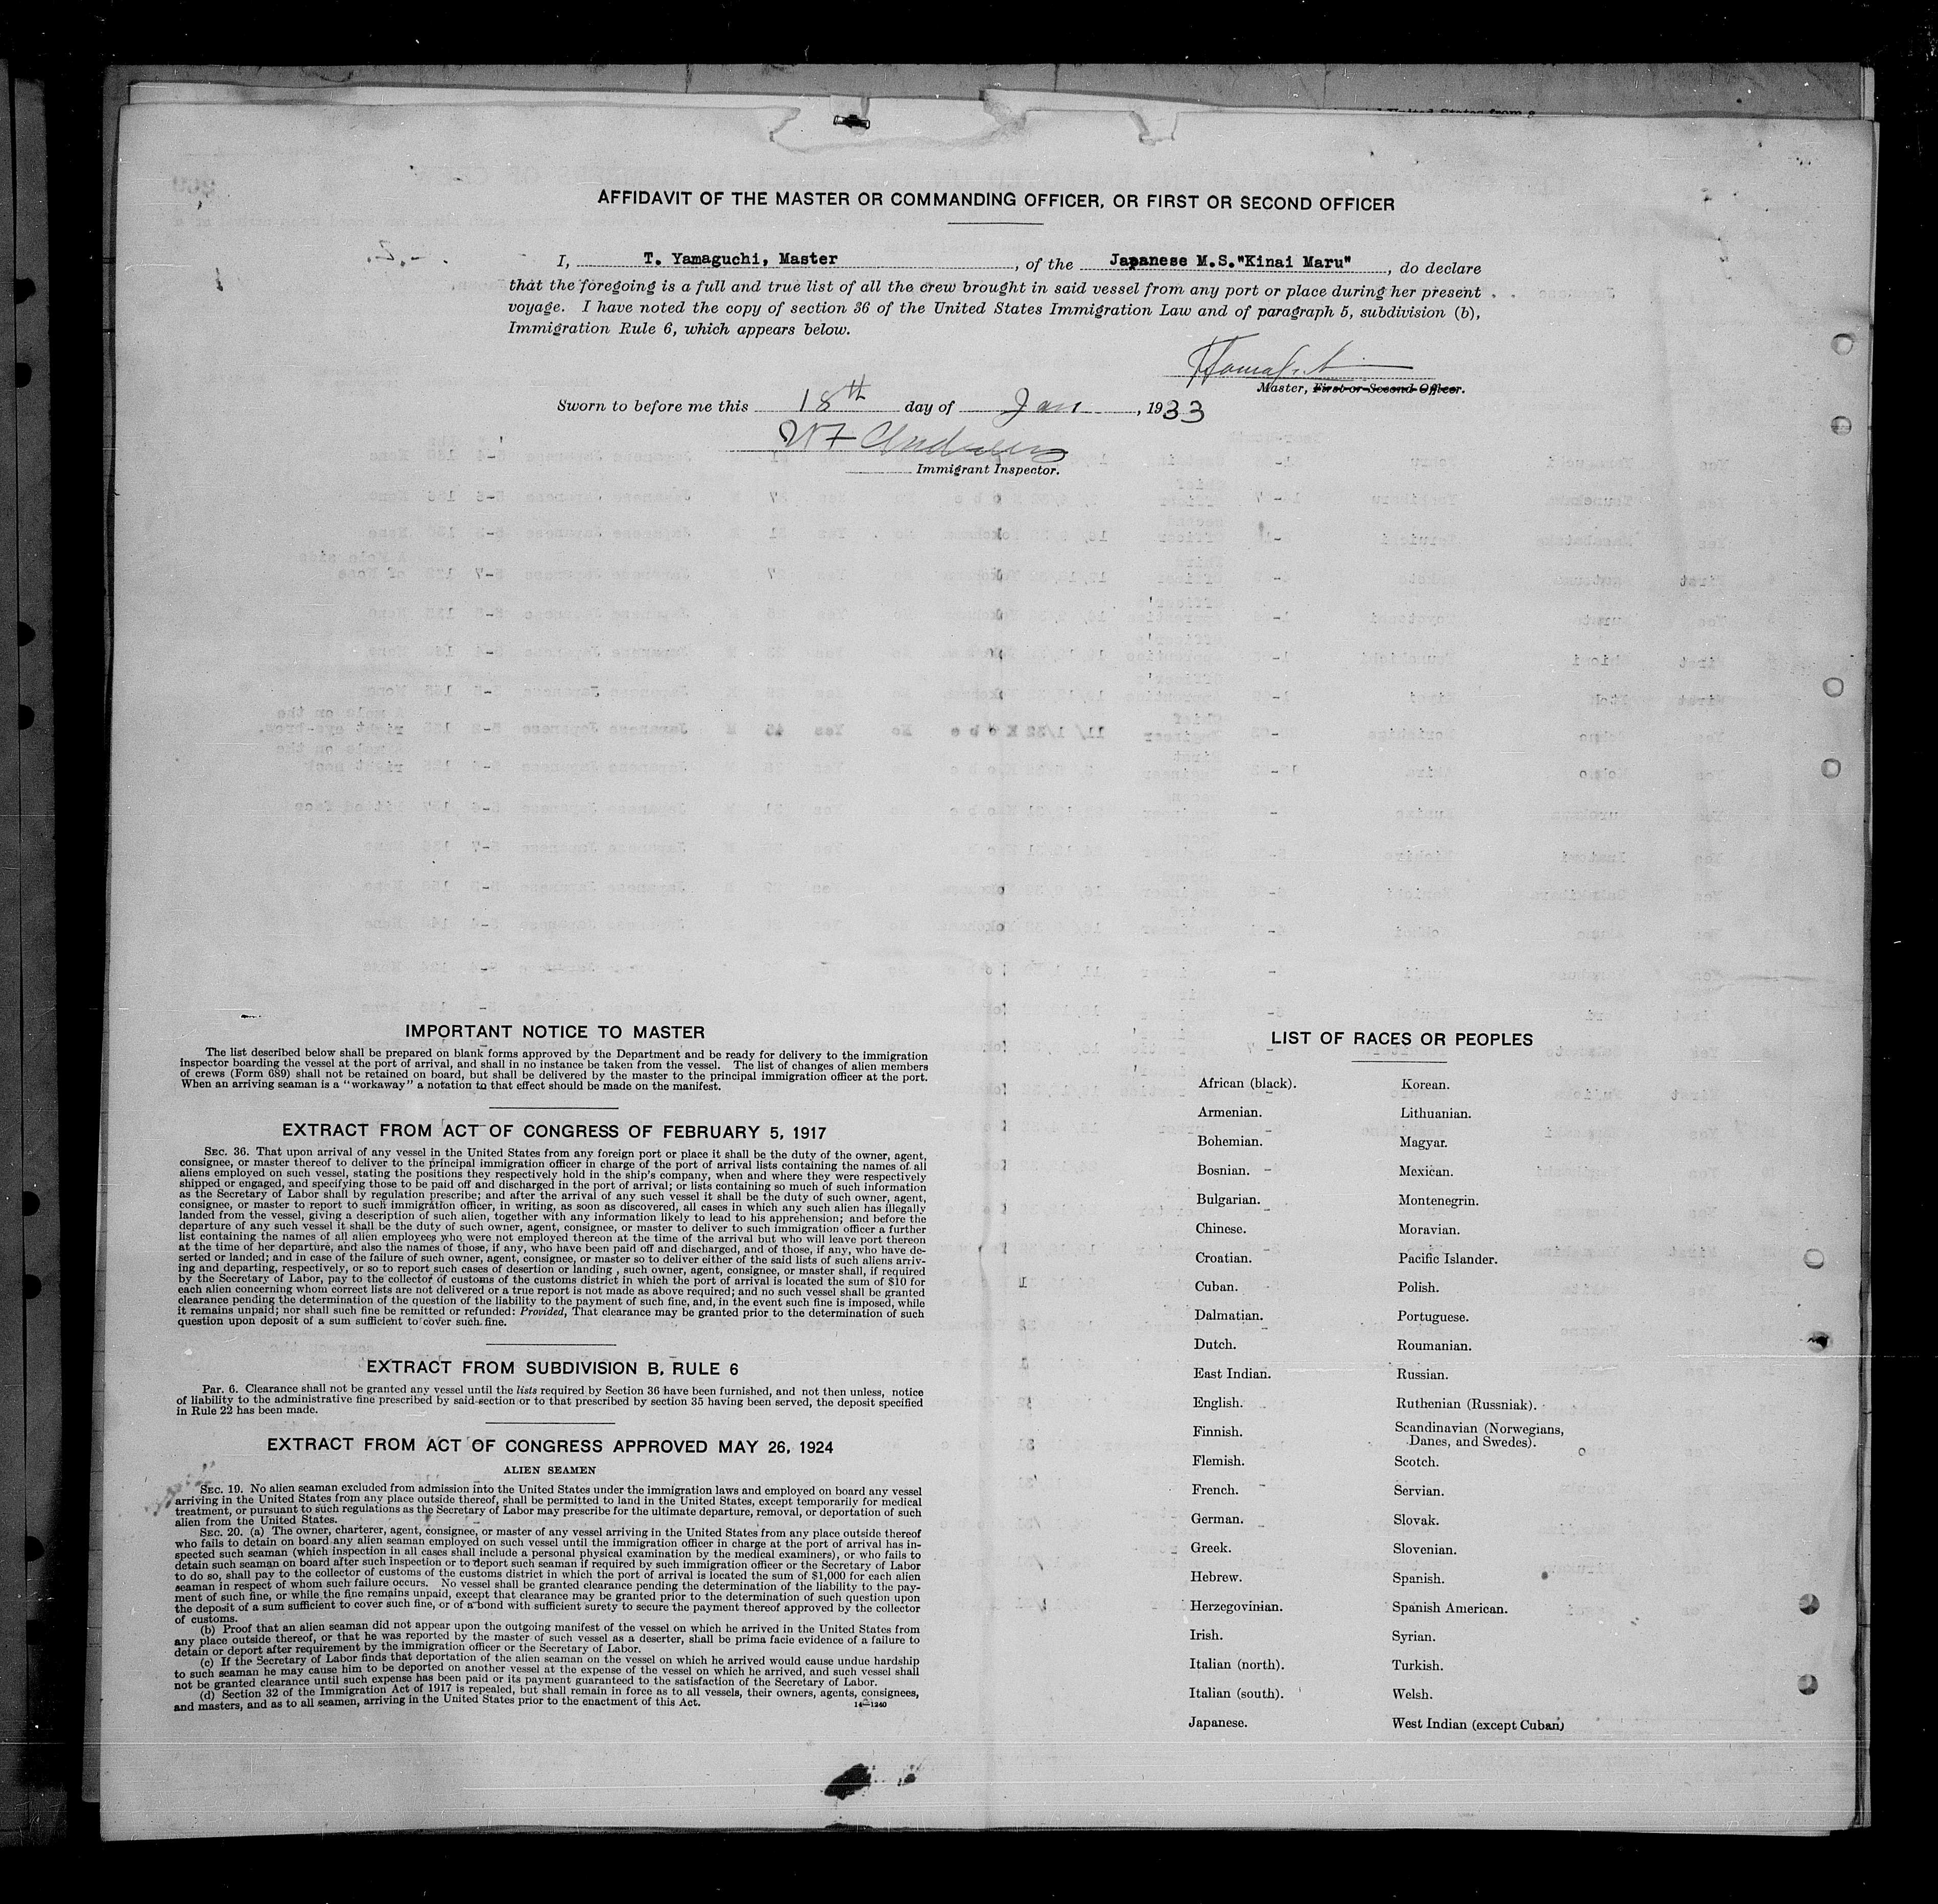 AFFIDAVIT OF THE MASTER OR COMMANDING OFFICER, OR FIRST OR SECOND OFFICER
I, T. Yamaguchi, Master, of the Japanese M.S."Kinai Maru", do declare
that the foregoing is a full and true list of all the crew brought in said vessel from any port or place during her present
voyage. I have noted the copy of section 36 of the United States Immigration Law and of paragraph 5, subdivision (b),
Immigration Rule 6, which appears below.
Master, First or Second Officer.
Sworn to before me this 18th day of Jan, 1933
Immigrant Inspector.
IMPORTANT NOTICE TO MASTER
The list described below shall be prepared on blank forms approved by the Department and be ready for delivery to the immigration
inspector boarding the vessel at the port of arrival, and shall in no instance be taken from the vessel. The list of changes of alien members
of crews (Form 689) shall not be retained on board, but shall be delivered by the master to the principal immigration officer at the port.
When an arriving seaman is a "workaway" a notation to that effect should be made on the manifest.
EXTRACT FROM ACT OF CONGRESS OF FEBRUARY 5, 1917
SEC. 36. That upon arrival of any vessel in the United States from any foreign port or place it shall be the duty of the owner, agent,
consignee, or master thereof to deliver to the principal immigration officer in charge of the port of arrival lists containing the names of all
aliens employed on such vessel, stating the positions they respectively hold in the ship's company, when and where they were respectively
shipped or engaged, and specifying those to be paid off and discharged in the port of arrival; or lists containing so much of such information
as the Secretary of Labor shall by regulation prescribe; and after the arrival of any such vessel it shall be the duty of such owner, agent,
consignee, or master to report to such immigration officer, in writing, as soon as discovered, all cases in which any such alien has illegally
landed from the vessel, giving a description of such alien, together with any information likely to lead to his apprehension; and before the
departure of any such vessel it shall be the duty of such owner, agent, consignee, or master to deliver to such immigration officer a further
list containing the names of all alien employees who were not employed thereon at the time of the arrival but who will leave port thereon
at the time of her departure, and also the names of those, if any, who have been paid off and discharged, and of those, if any, who have de-
serted or landed; and in case of the failure of such owner, agent, consignee, or master so to deliver either of the said lists of such aliens arriv-
ing and departing, respectively, or so to report such cases of desertion or landing , such owner, agent, consignee, or master shall, if required
by the Secretary of Labor, pay to the collector of customs of the customs district in which the port of arrival is located the sum of $10 for
each alien concerning whom correct lists are not delivered or a true report is not made as above required; and no such vessel shall be granted
clearance pending the determination of the question of the liability to the payment of such fine, and, in the event such fine is imposed, while
it remains unpaid; nor shall such fine be remitted or refunded: Provided, That clearance may be granted prior to the determination of such
question upon deposit of a sum sufficient to cover such fine.
EXTRACT FROM SUBDIVISION B, RULE 6
Par. 6. Clearance shall not be granted any vessel until the lists required by Section 36 have been furnished, and not then unless, notice
of liability to the administrative fine prescribed by said section or to that prescribed by section 35 having been served, the deposit specified
in Rule 22 has been made.
EXTRACT FROM ACT OF CONGRESS APPROVED MAY 26, 1924
ALIEN SEAMEN
SEC. 19. No alien seaman excluded from admission into the United States under the immigration laws and employed on board any vessel
arriving in the United States from any place outside thereof, shall be permitted to land in the United States, except temporarily for medical
treatment, or pursuant to such regulations as the Secretary of Labor may prescribe for the ultimate departure, removal, or deportation of such
alien from the United States.
SEC. 20. (a) The owner, charterer, agent, consignee, or master of any vessel arriving in the United States from any place outside thereof
who fails to detain on board any alien seaman employed on such vessel until the immigration officer in charge at the port of arrival has in-
spected such seaman (which inspection in all cases shall include a personal physical examination by the medical examiners), or who fails to
detain such seaman on board after such inspection or to deport such seaman if required by such immigration officer or the Secretary of Labor
to do so, shall pay to the collector of customs of the customs district in which the port of arrival is located the sum of $1,000 for each alien
seaman in respect of whom such failure occurs. No vessel shall be granted clearance pending the determination of the liability to the pay-
ment of such fine, or while the fine remains unpaid, except that clearance may be granted prior to the determination of such question upon
the deposit of a sum sufficient to cover such fine, or of a bond with sufficient surety to secure the payment thereof approved by the collector
of customs.
(b) Proof that an alien seaman did not appear upon the outgoing manifest of the vessel on which he arrived in the United States from
any place outside thereof, or that he was reported by the master of such vessel as a deserter, shall be prima facie evidence of a failure to
detain or deport after requirement by the immigration officer or the Secretary of Labor.
(c) If the Secretary of Labor finds that deportation of the alien seaman on the vessel on which he arrived would cause undue hardship
to such seaman he may cause him to be deported on another vessel at the expense of the vessel on which he arrived, and such vessel shall
not be granted clearance until such expense has been paid or its payment guaranteed to the satisfaction of the Secretary of Labor.
(d) Section 32 of the Immigration Act of 1917 is repealed, but shall remain in force as to all vessels, their owners, agents, consignees,
and masters, and as to all seamen, arriving in the United States prior to the enactment of this Act.
14—1240
LIST OF RACES OR PEOPLES
African (black).
Armenian.
Bohemian.
Bosnian.
Bulgarian.
Chinese.
Croatian.
Cuban.
Dalmatian.
Dutch.
East Indian.
English.
Finnish.
Flemish.
French.
German.
Greek.
Hebrew.
Herzegovinian.
Irish.
Italian (north).
Italian (south).
Japanese.
Korean.
Lithuanian.
Magyar.
Mexican.
Montenegrin.
Moravian.
Pacific Islander.
Polish.
Portuguese.
Roumanian.
Russian.
Ruthenian (Russniak).
Scandinavian (Norwegians,
Danes, and Swedes).
Scotch.
Servian.
Slovak.
Slovenian.
Spanish.
Spanish American.
Syrian.
Turkish.
Welsh.
West Indian (except Cuban)